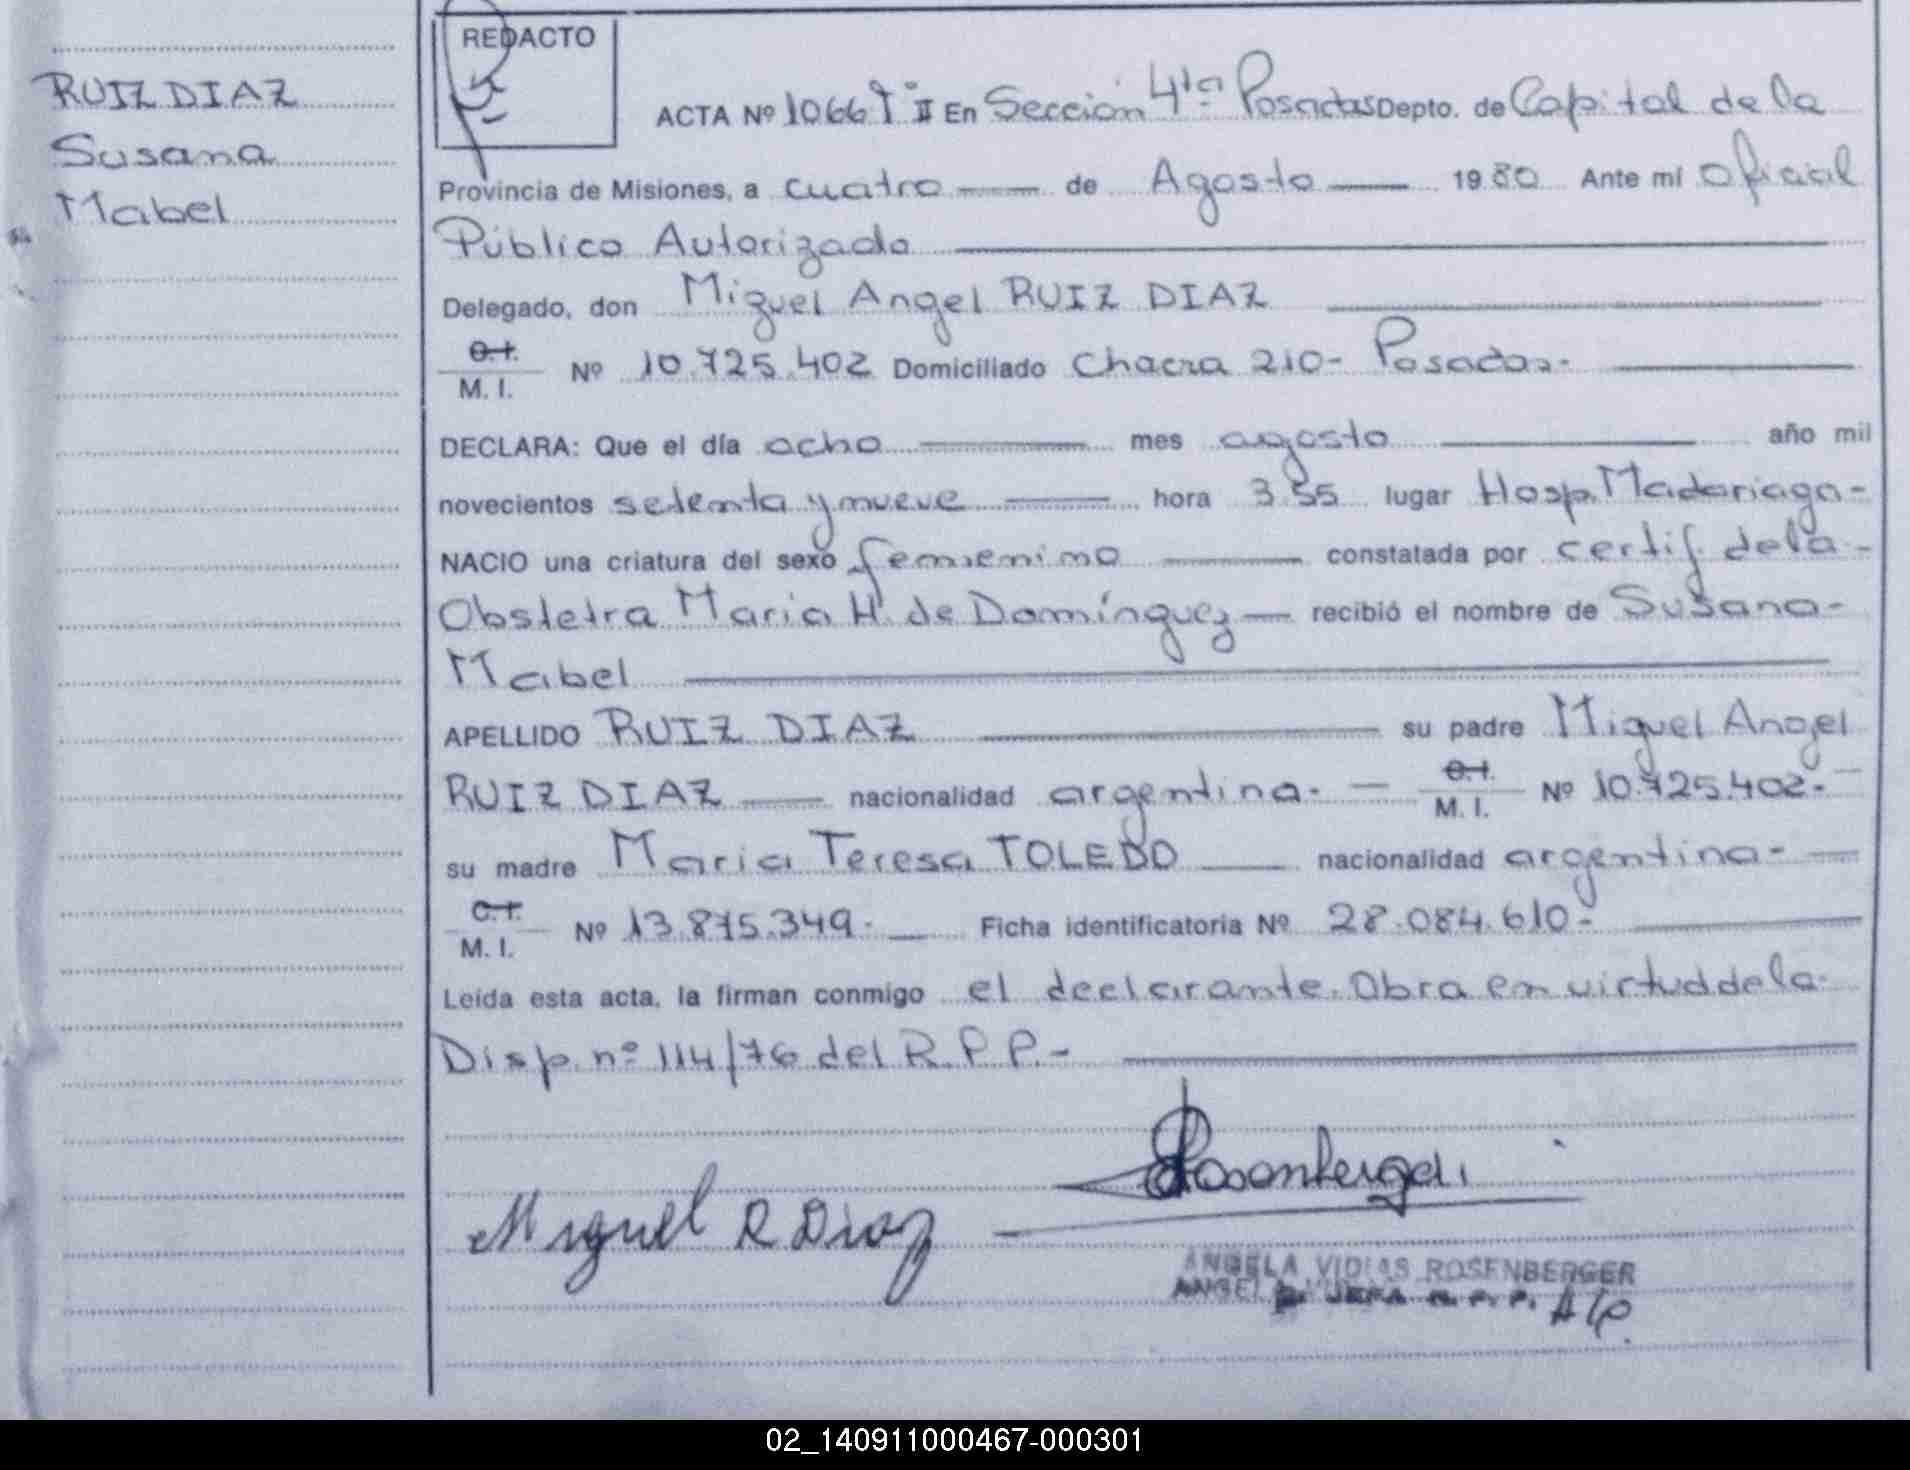 RUIZ DIAZ
Susana
Mabel
REDACTO
ACTA Nº 1066 Tº II En Sección 4ta Posadas Depto. de Capital de la
Provincia de Misiones, a cuatro de Agosto 1980 Ante mí Oficial
Público Autorizado
Delegado, don Miguel Angel RUIZ DIAZ
C.I.
M. I. Nº 10.725.402 Domiciliado Chacra 210- Posadas.-
DECLARA: Que el día ocho mes agosto año mil
novecientos setenta y nueve hora 3.55 lugar Hosp. Madariaga-
NACIO una criatura del sexo femenino constatada por certif. de la-
Obstetra Maria H. de Domínguez recibió el nombre de Susana-
Mabel
APELLIDO RUIZ DIAZ su padre Miguel Angel
RUIZ DIAZ nacionalidad argentina.- C.I. M. I. Nº 10.725.402.-
su madre Maria Teresa TOLEDO nacionalidad argentina-
C.I.
M. I. Nº 13.875.349.- Ficha identificatoria Nº 28.084.610.-
Leída esta acta, la firman conmigo el declarante. Obra en virtud de la
Disp. nº 114/76 del R.P.P.-
Miguel R Diaz
ANGELA VIDIAS ROSENBERGER
JEFA R. P. P. A/C.
02_140911000467-000301